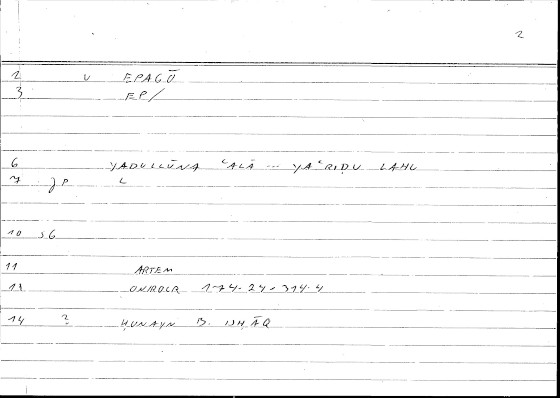 2
2 v EPAGŌ
3 EP/
6 YADULLŪNA ʿALĀ --- YAʿRIḌU LAHU
7 JP L
10 SG
11 ARTEM
13 ONIROCR 1-74.24-314.4
14 ? ḤUNAYN B. ISḤĀQ